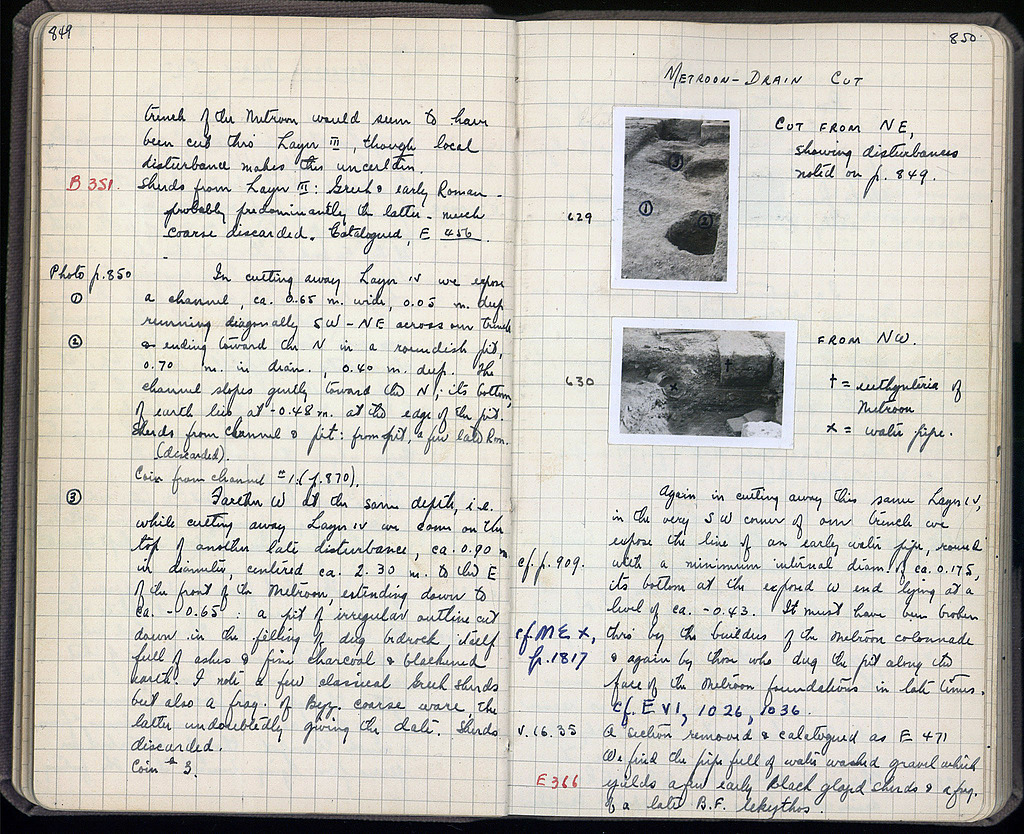 849
trench of the Metroon would seem to have
been cut thro' Layer III, though local
disturbance makes this uncertain.
B 351.
Sherds from Layer III: Greek & early Roman -
probably predominantly the latter - much
coarse discarded. Catalogued, E 456.
Photo p. 850
In cutting away Layer IV we expose
①
a channel, ca. 0.65 m. wide, 0.05 m. deep
running diagonally SW-NE across our trench
②
& ending toward the N in a roundish pit,
0.70 m. in diam., 0.40 m. deep. The
channel slopes gently toward the N; its bottom,
of earth lies at -0.48 m. at the edge of the pit.
Sherds from channel & pit: from pit, a few late Rom.
(discarded).
Coin from channel #1. (p. 870).
③
Farther W at the same depth, i.e.
while cutting away Layer IV we come on the
top of another late disturbance, ca. 0.90 m
in diameter, centered ca. 2.30 m. to the E
of the front of the Metroon, extending down to
ca. -0.65: a pit of irregular outline cut
down in the filling of dug bedrock itself
full of ashes & fine charcoal & blackened
earth. I note a few classical Greek sherds
but also a frag. of Byz. coarse ware, the
latter undoubtedly giving the date. Sherds
discarded.
Coin #3.
850.
METROON-DRAIN CUT
629
③
①
②
CUT FROM NE,
showing disturbances
noted on p. 849.
630
†
x
FROM NW.
† = euthynteria of
Metroon
x = water pipe.
Again in cutting away this same Layer IV,
in the very SW corner of our trench we
expose the line of an early water pipe, round
cf. p. 909.
with a minimum internal diam. of ca. 0.175,
its bottom at the exposed W end lying at a
level of ca. -0.43. It must have been broken
cf. ME X,
p. 1817
thro' by the builders of the Metroon colonnade
& again by those who dug the pit along the
face of the Metroon foundations in late times.
cf. E VI, 1026, 1036.
V. 16.35
A section removed & catalogued as E 471
We find the pipe full of water washed gravel which
E 366
yields a few early Black glazed sherds & a frag.
of a late B.F. lekythos.